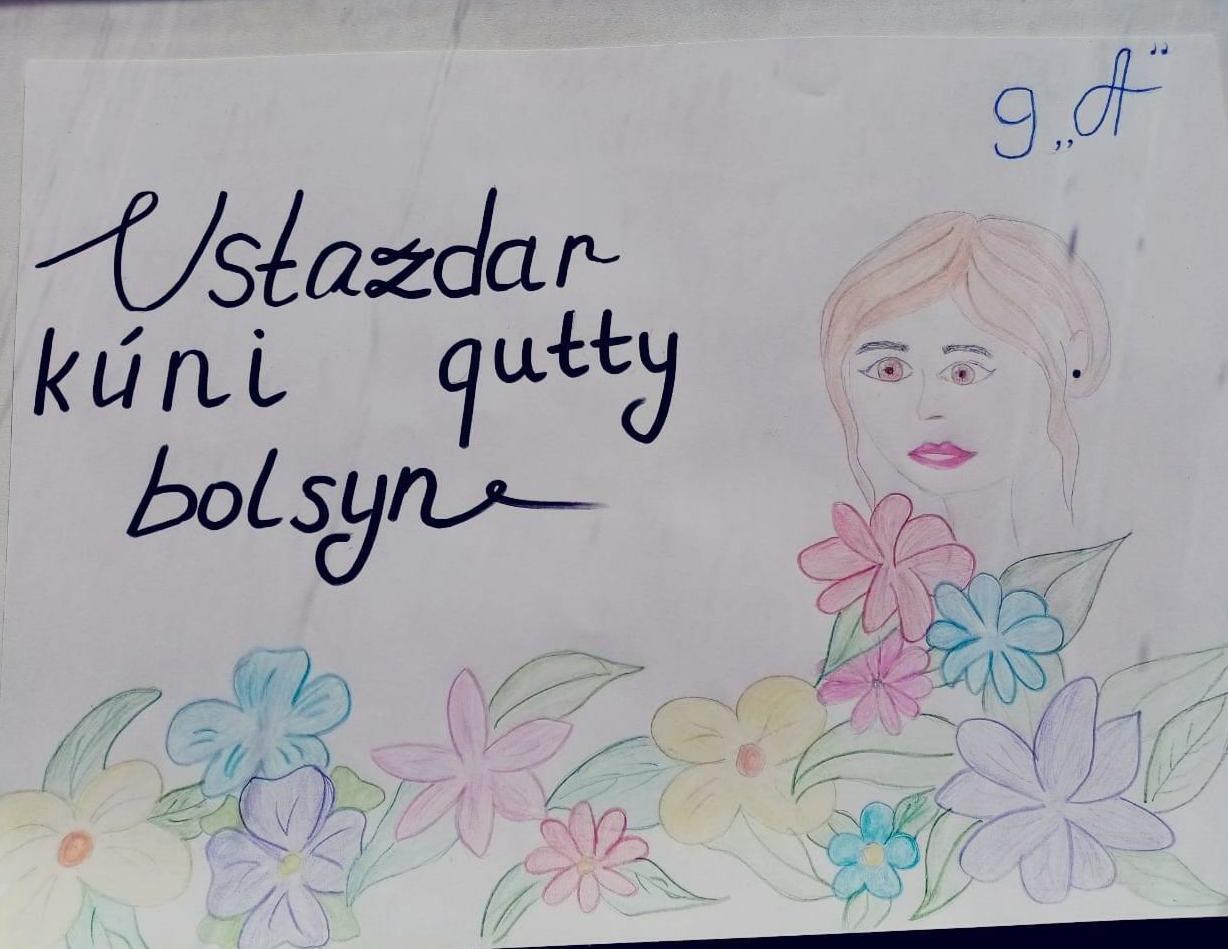 9 „A“
Ustazdar
kúni qutty
bolsyn